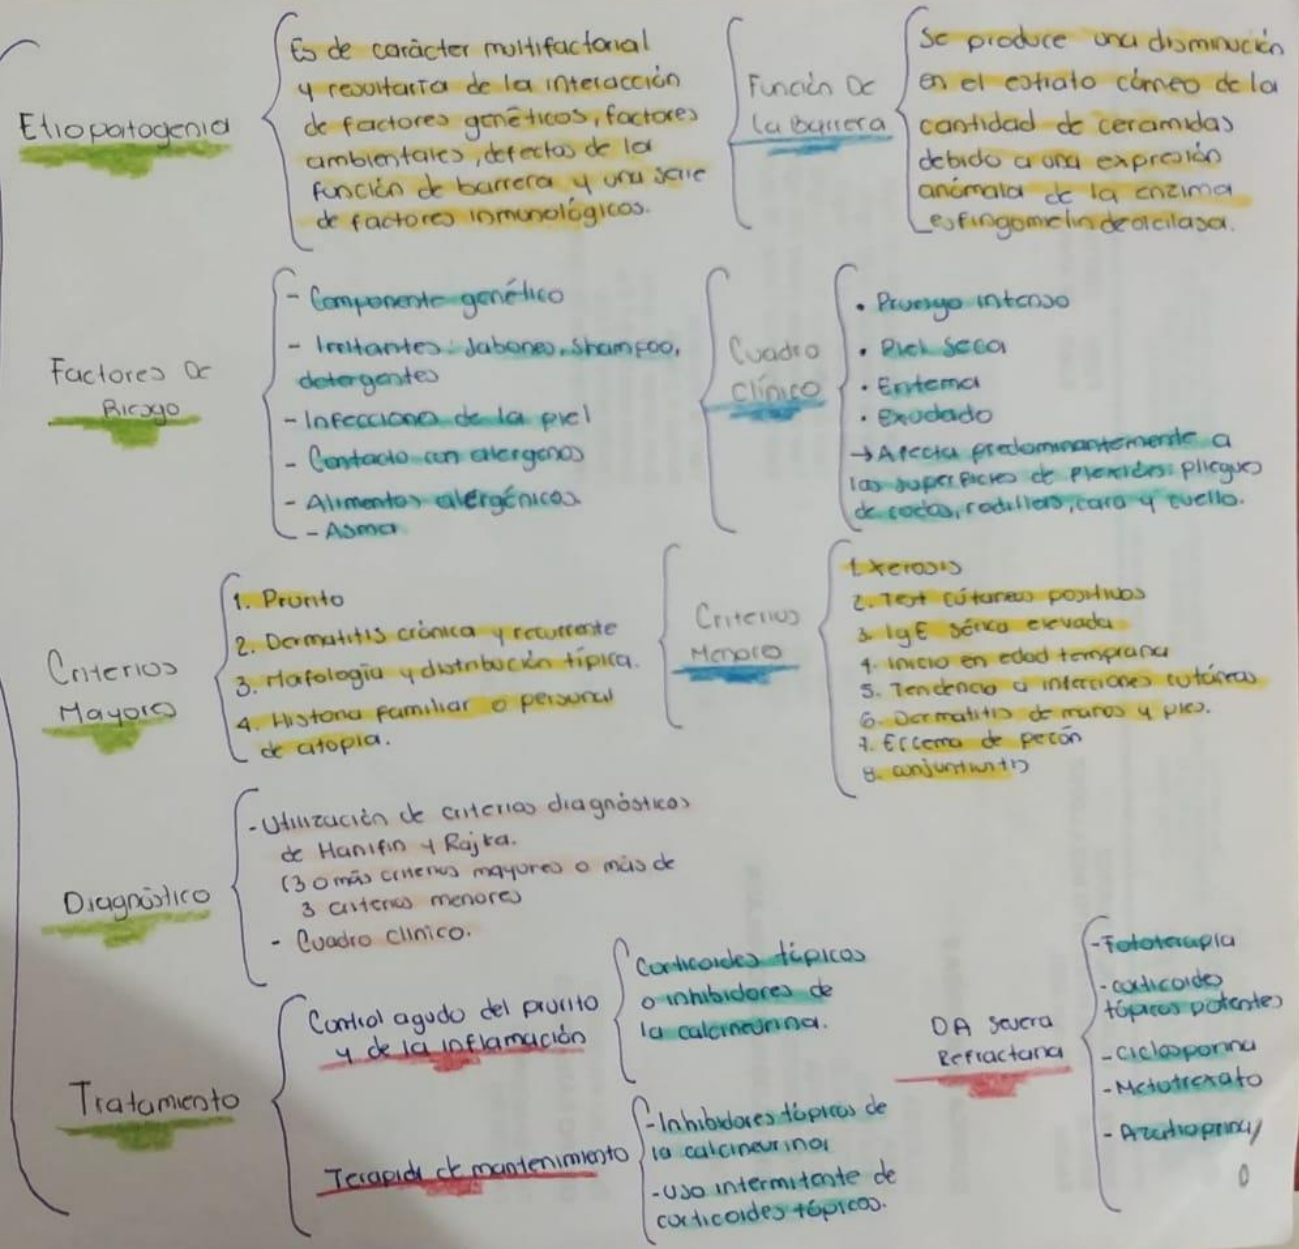 Etiopatogenia
Es de carácter multifactorial
y resultaría de la interacción
de factores genéticos, factores
ambientales, defectos de la
función de barrera y una serie
de factores inmunológicos.
Función De
la Barrera
Se produce una disminución
en el estrato córneo de la
cantidad de ceramidas
debido a una expresión
anómala de la enzima
esfingomielin deacilasa.
Factores De
Riesgo
- Componente genético
- Irritantes: Jabones, shampoo,
detergentes
- Infecciones de la piel
- Contacto con alergenos
- Alimentos alergénicos
- Asma
Cuadro
Clínico
• Prurigo intenso
• Piel Seca
• Eritema
• Exudado
→ Afecta predominantemente a
las superficies de flexión: pliegues
de codos, rodillas, cara y cuello.
Criterios
Mayores
1. Prurito
2. Dermatitis crónica y recurrente
3. Mofología y distribución típica.
4. Historia familiar o personal
de atopia.
Criterios
Menores
1. Xerosis
2. Test cútaneos positivos
3. IgE sérica elevada
4. Inicio en edad temprana
5. Tendencia a infecciones cutáneas
6. Dermatitis de manos y pies.
7. Eccema de pezón
8. conjuntivitis
Diagnóstico
- Utilización de criterios diagnósticos
de Hanifin y Rajka.
(3 o más criterios mayores o más de
3 criterios menores
- Cuadro clínico.
Tratamiento
Control agudo del prurito
y de la inflamación
Corticoides tópicos
o inhibidores de
la calcineurina.
Terapia de mantenimiento
- Inhibidores tópicos de
la calcineurina
- Uso intermitente de
corticoides tópicos.
DA severa
Refractaria
- Fototerapia
- corticoides
tópicos potentes
- Ciclosporina
- Metotrexato
- Azatioprina